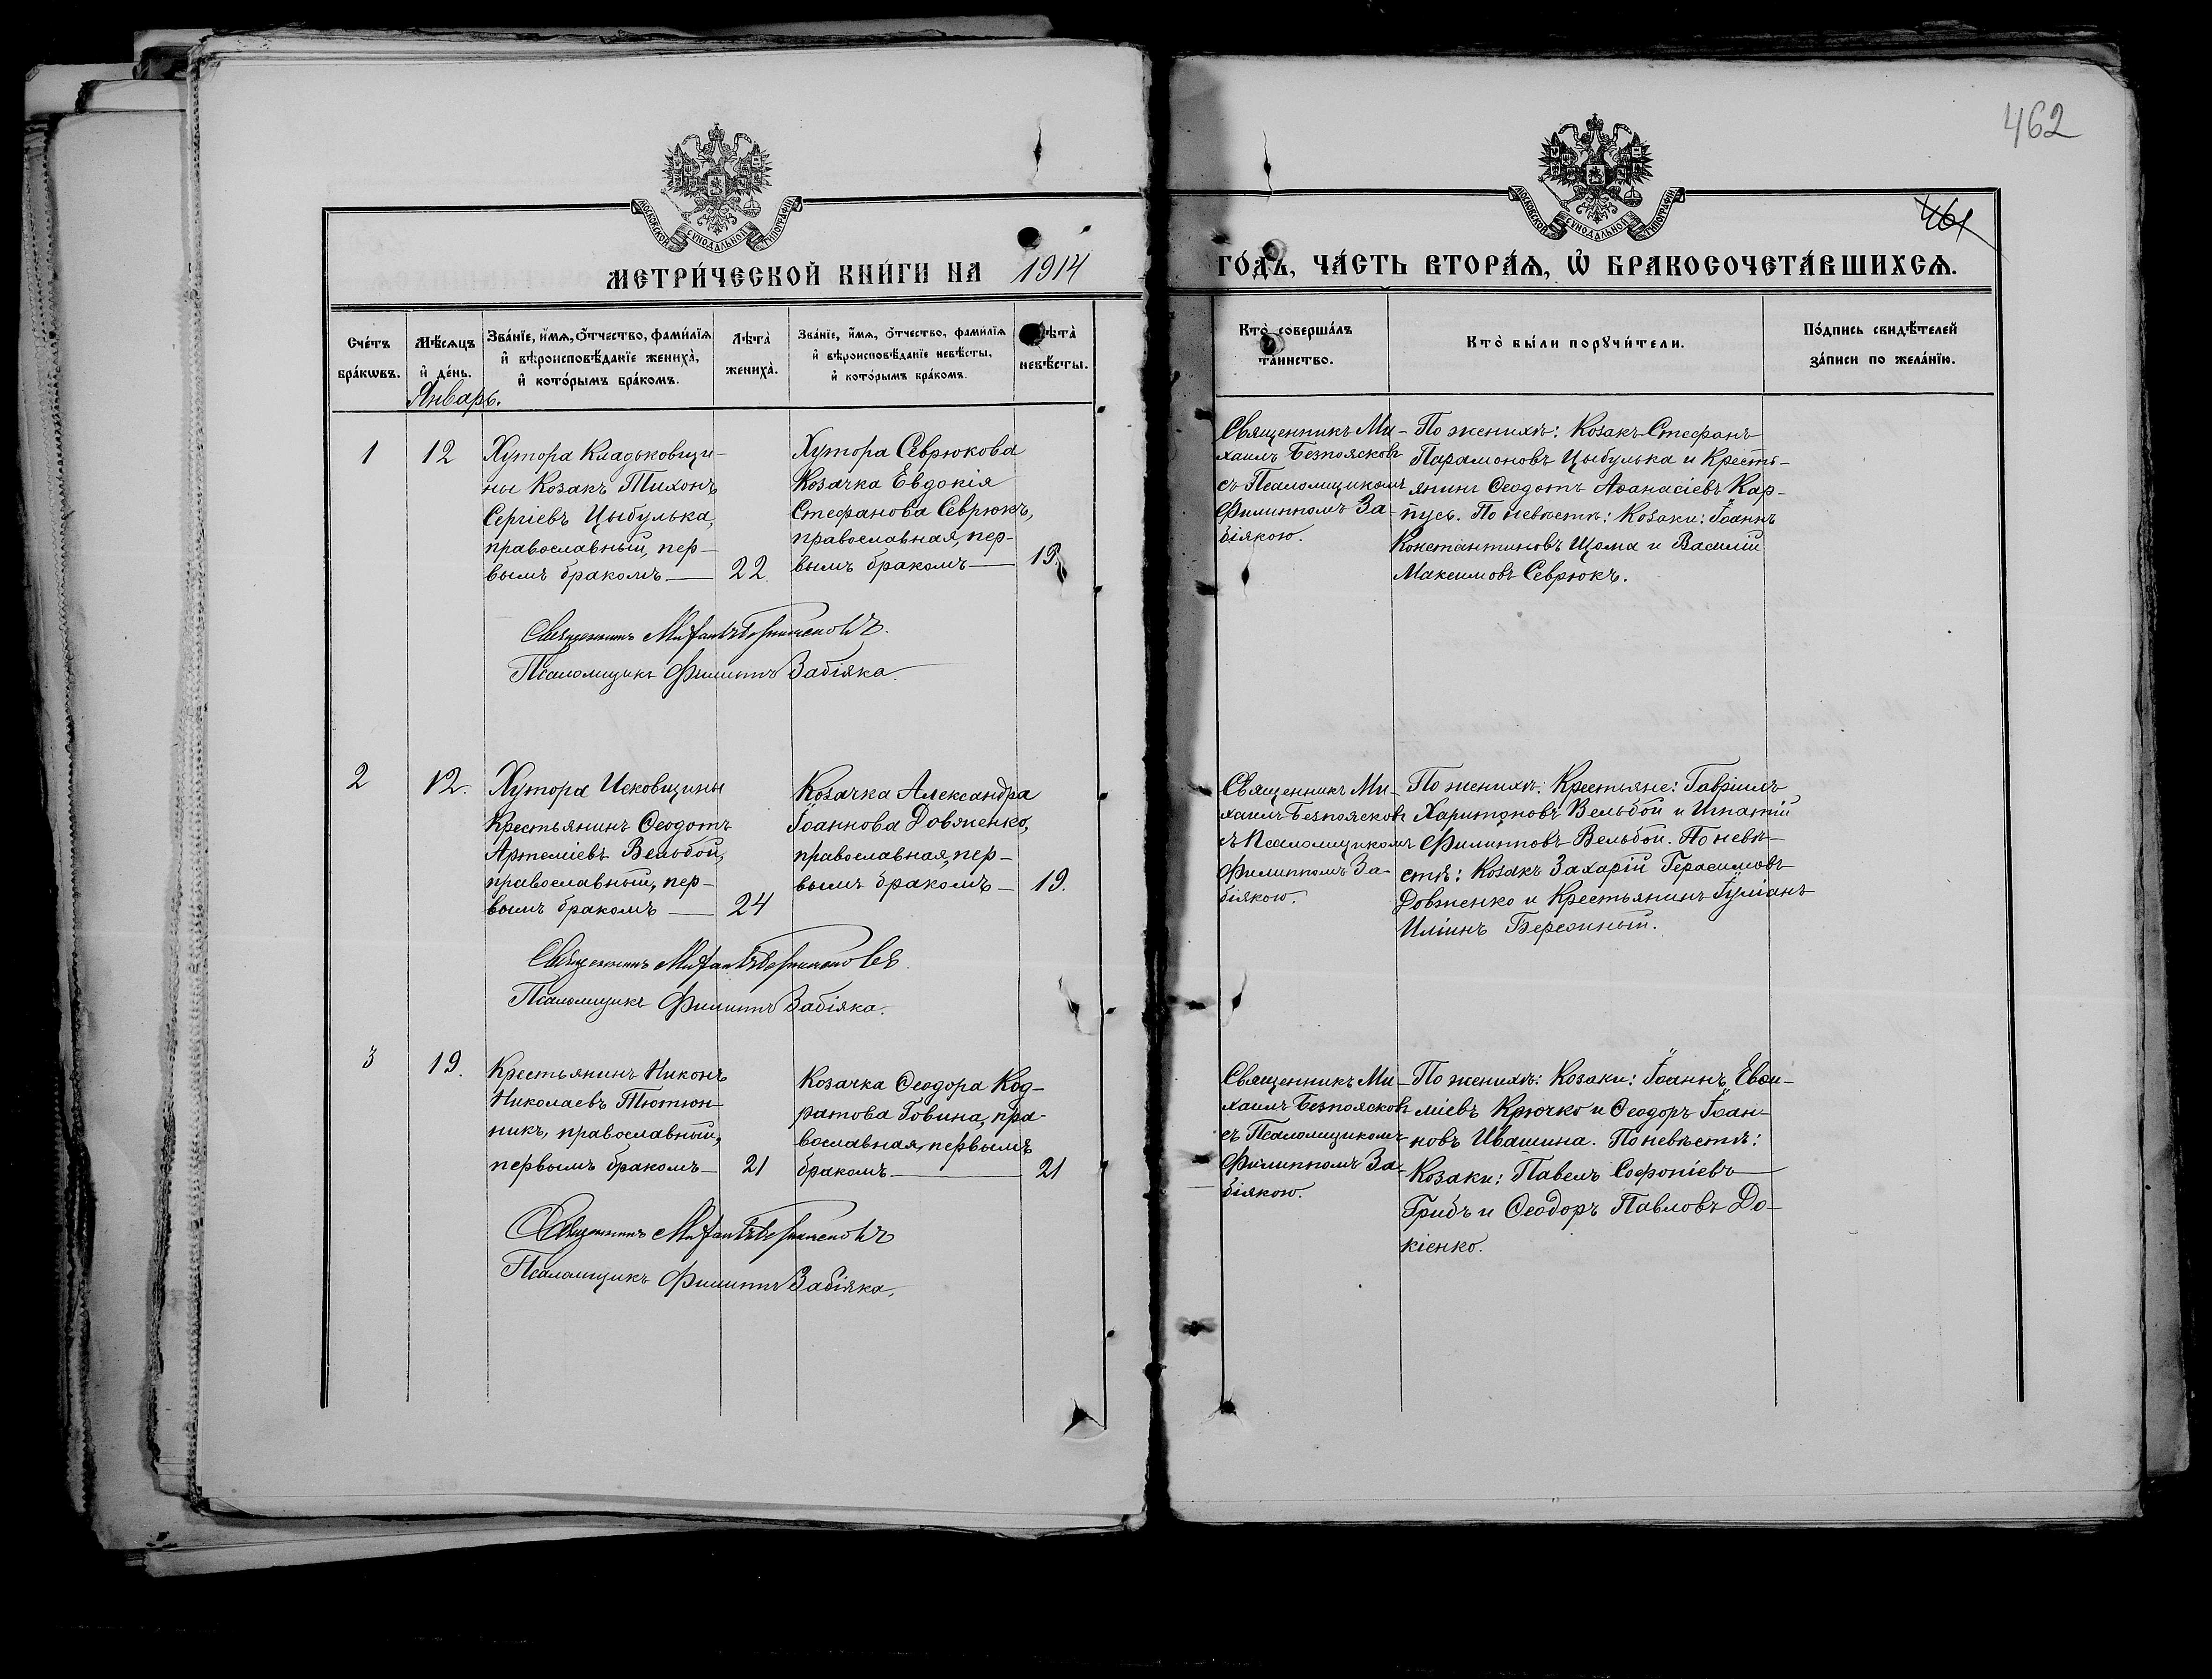 462
461
МОСКОВСКОЙ СѴНОДАЛЬНОЙ ТИПОГРАФІИ
МОСКОВСКОЙ СѴНОДАЛЬНОЙ ТИПОГРАФІИ
МЕТРИ́ЧЕСКОЙ КНИ́ГИ НА 1914 ГО́ДЪ, ЧА́СТЬ ВТОРА́Ѧ, Ѽ БРАКОСОЧЕТА́ВШИХСѦ.
Сче́тъ
бра́кѡвъ.
Мѣ́сѧцъ
и҆ де́нь.
Зва́нїе, и҆́мѧ, ѻ҆́тчество, фами́лїѧ
и҆ вѣроисповѣ́данїе жениха̀,
и҆ кото́рымъ бра́комъ.
Лѣта̀
жениха̀.
Зва́нїе, и҆́мѧ, ѻ҆́тчество, фами́лїѧ
и҆ вѣроисповѣ́данїе невѣ́сты,
и҆ кото́рымъ бра́комъ.
Лѣта̀
невѣ́сты.
Кто̀ соверша́лъ
та́инство.
Кто̀ бы́ли порꙋчи́тели.
По́дпись свидѣ́телей
за́писи по жела́нїю.
Январь.
1
12
Хутора Кладьковщи-
ны Козакъ Тихонъ
Сергіевъ Цыбулька,
православный, пер-
вымъ бракомъ
22
Хутора Севрюкова
Козачка Евдокія
Стефанова Севрюкъ,
православная, пер-
вымъ бракомъ
19.
Священникъ Ми-
хаилъ Безпоясковъ
съ Псаломщикомъ
Филиппомъ За-
біякою.
По женихѣ: Козакъ Стефанъ
Парамоновъ Цыбулька и Кресть-
янинъ Ѳеодотъ Аѳанасіевъ Кар-
пусь. По невѣстѣ: Козаки: Іоаннъ
Константиновъ Щома и Василій
Максимовъ Севрюкъ.
Священникъ Михаилъ Безпоясковъ.
Псаломщикъ Филиппъ Забіяка.
2
12.
Хутора Исковщины
Крестьянинъ Ѳеодотъ
Артеміевъ Вельбой,
православный, пер-
вымъ бракомъ
24
Козачка Александра
Іоаннова Довженко,
православная, пер-
вымъ бракомъ
19.
Священникъ Ми-
хаилъ Безпоясковъ
съ Псаломщикомъ
Филиппомъ За-
біякою.
По женихѣ: Крестьяне: Гавріилъ
Харитоновъ Вельбой и Игнатій
Филипповъ Вельбой. По невѣ-
стѣ: Козакъ Захарій Герасимовъ
Довженко и Крестьянинъ Іуліанъ
Иліинъ Бережный.
Священникъ Михаилъ Безпоясковъ.
Псаломщикъ Филиппъ Забіяка.
3
19.
Крестьянинъ Никонъ
Николаевъ Тютюн-
никъ, православный,
первымъ бракомъ
21
Козачка Ѳеодора Код-
ратова Говина, пра-
вославная, первымъ
бракомъ
21
Священникъ Ми-
хаилъ Безпоясковъ
съ Псаломщикомъ
Филиппомъ За-
біякою.
По женихѣ: Козаки: Іоаннъ Евѳи-
міевъ Крючко и Ѳеодоръ Іоан-
новъ Ивашина. По невѣстѣ:
Козаки: Павелъ Софоніевъ
Грибъ и Ѳеодоръ Павловъ До-
кіенко.
Священникъ Михаилъ Безпоясковъ
Псаломщикъ Филиппъ Забіяка.